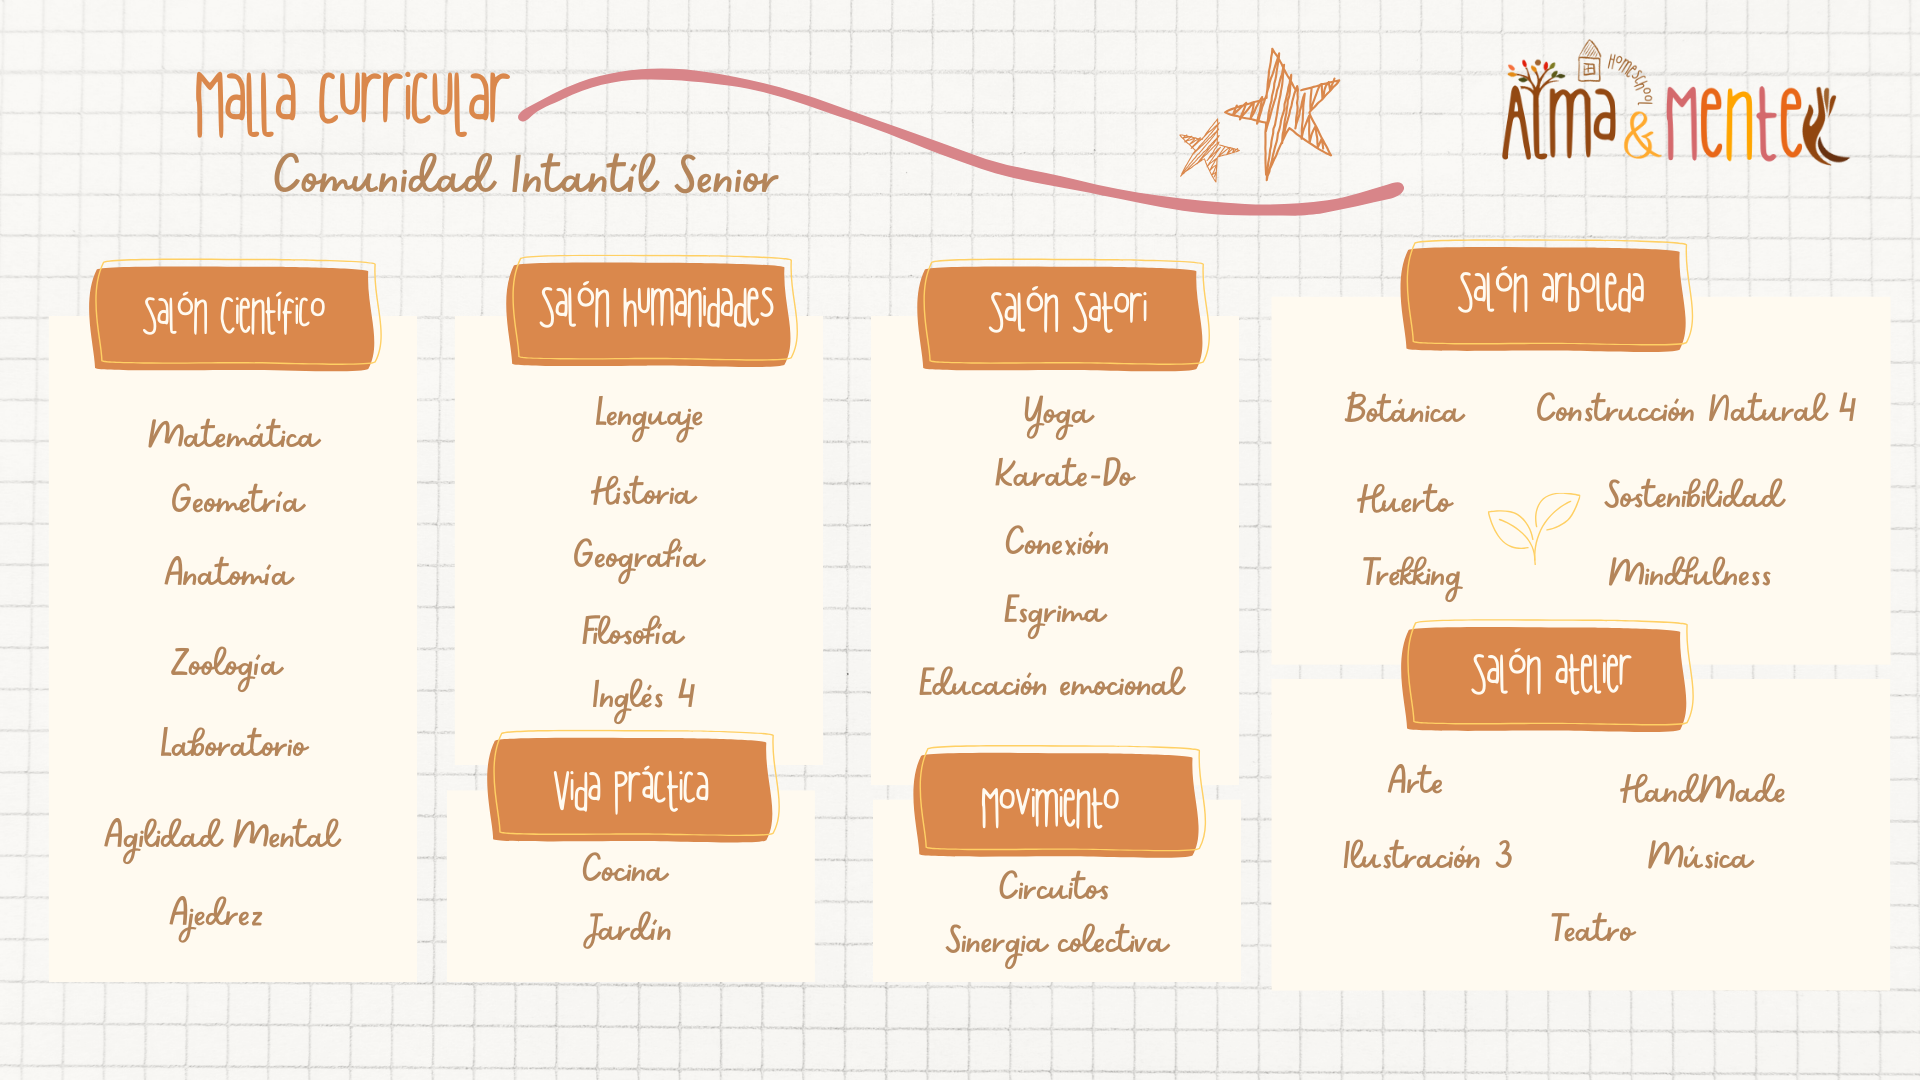 Malla curricular
Comunidad Intantíl Senior
Homeschool
Alma & Mente
Salón científico
Matemática
Geometría
Anatomía
Zoología
Laboratorio
Agilidad Mental
Ajedrez
Salón humanidades
Lenguaje
Historia
Geografía
Filosofía
Inglés 4
Vida práctica
Cocina
Jardín
Salón Satori
Yoga
Karate-Do
Conexión
Esgrima
Educación emocional
Movimiento
Circuitos
Sinergia colectiva
Salón arboleda
Botánica
Construcción Natural 4
Huerto
Sostenibilidad
Trekking
Mindfulness
Salón atelier
Arte
HandMade
Ilustración 3
Música
Teatro